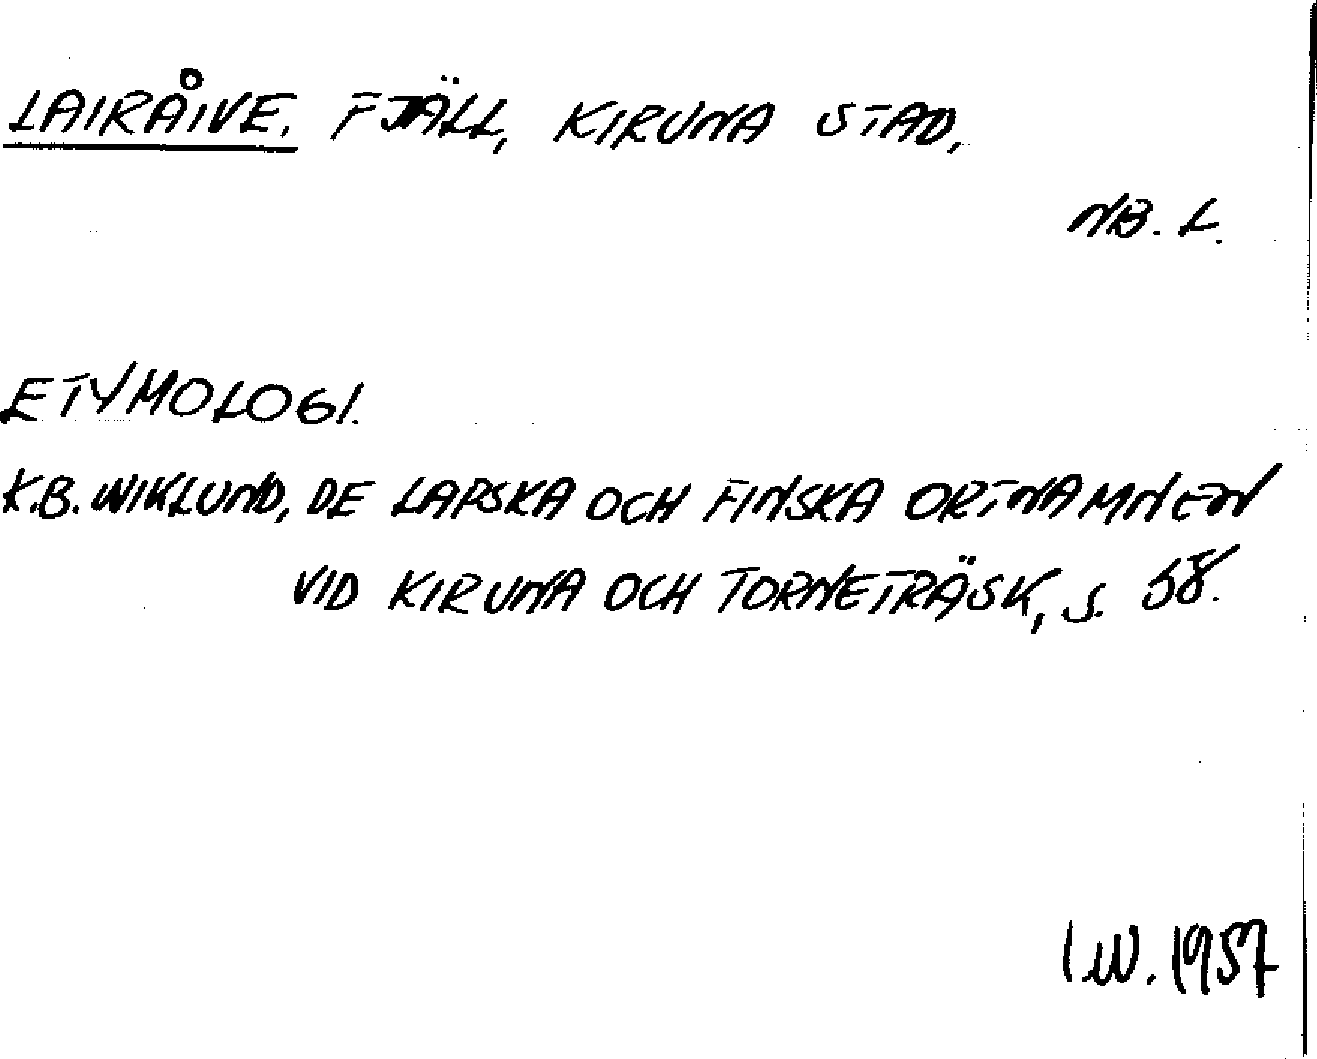 LAIRÅIVE. FJÄLL, KIRUNA STAD,
NB. L.
ETYMOLOGI.
K.B. WIKLUND, DE LAPSKA OCH FINSKA ORTNAMNEN
VID KIRUNA OCH TORNETRÄSK, S. 58.
I.W. 1957